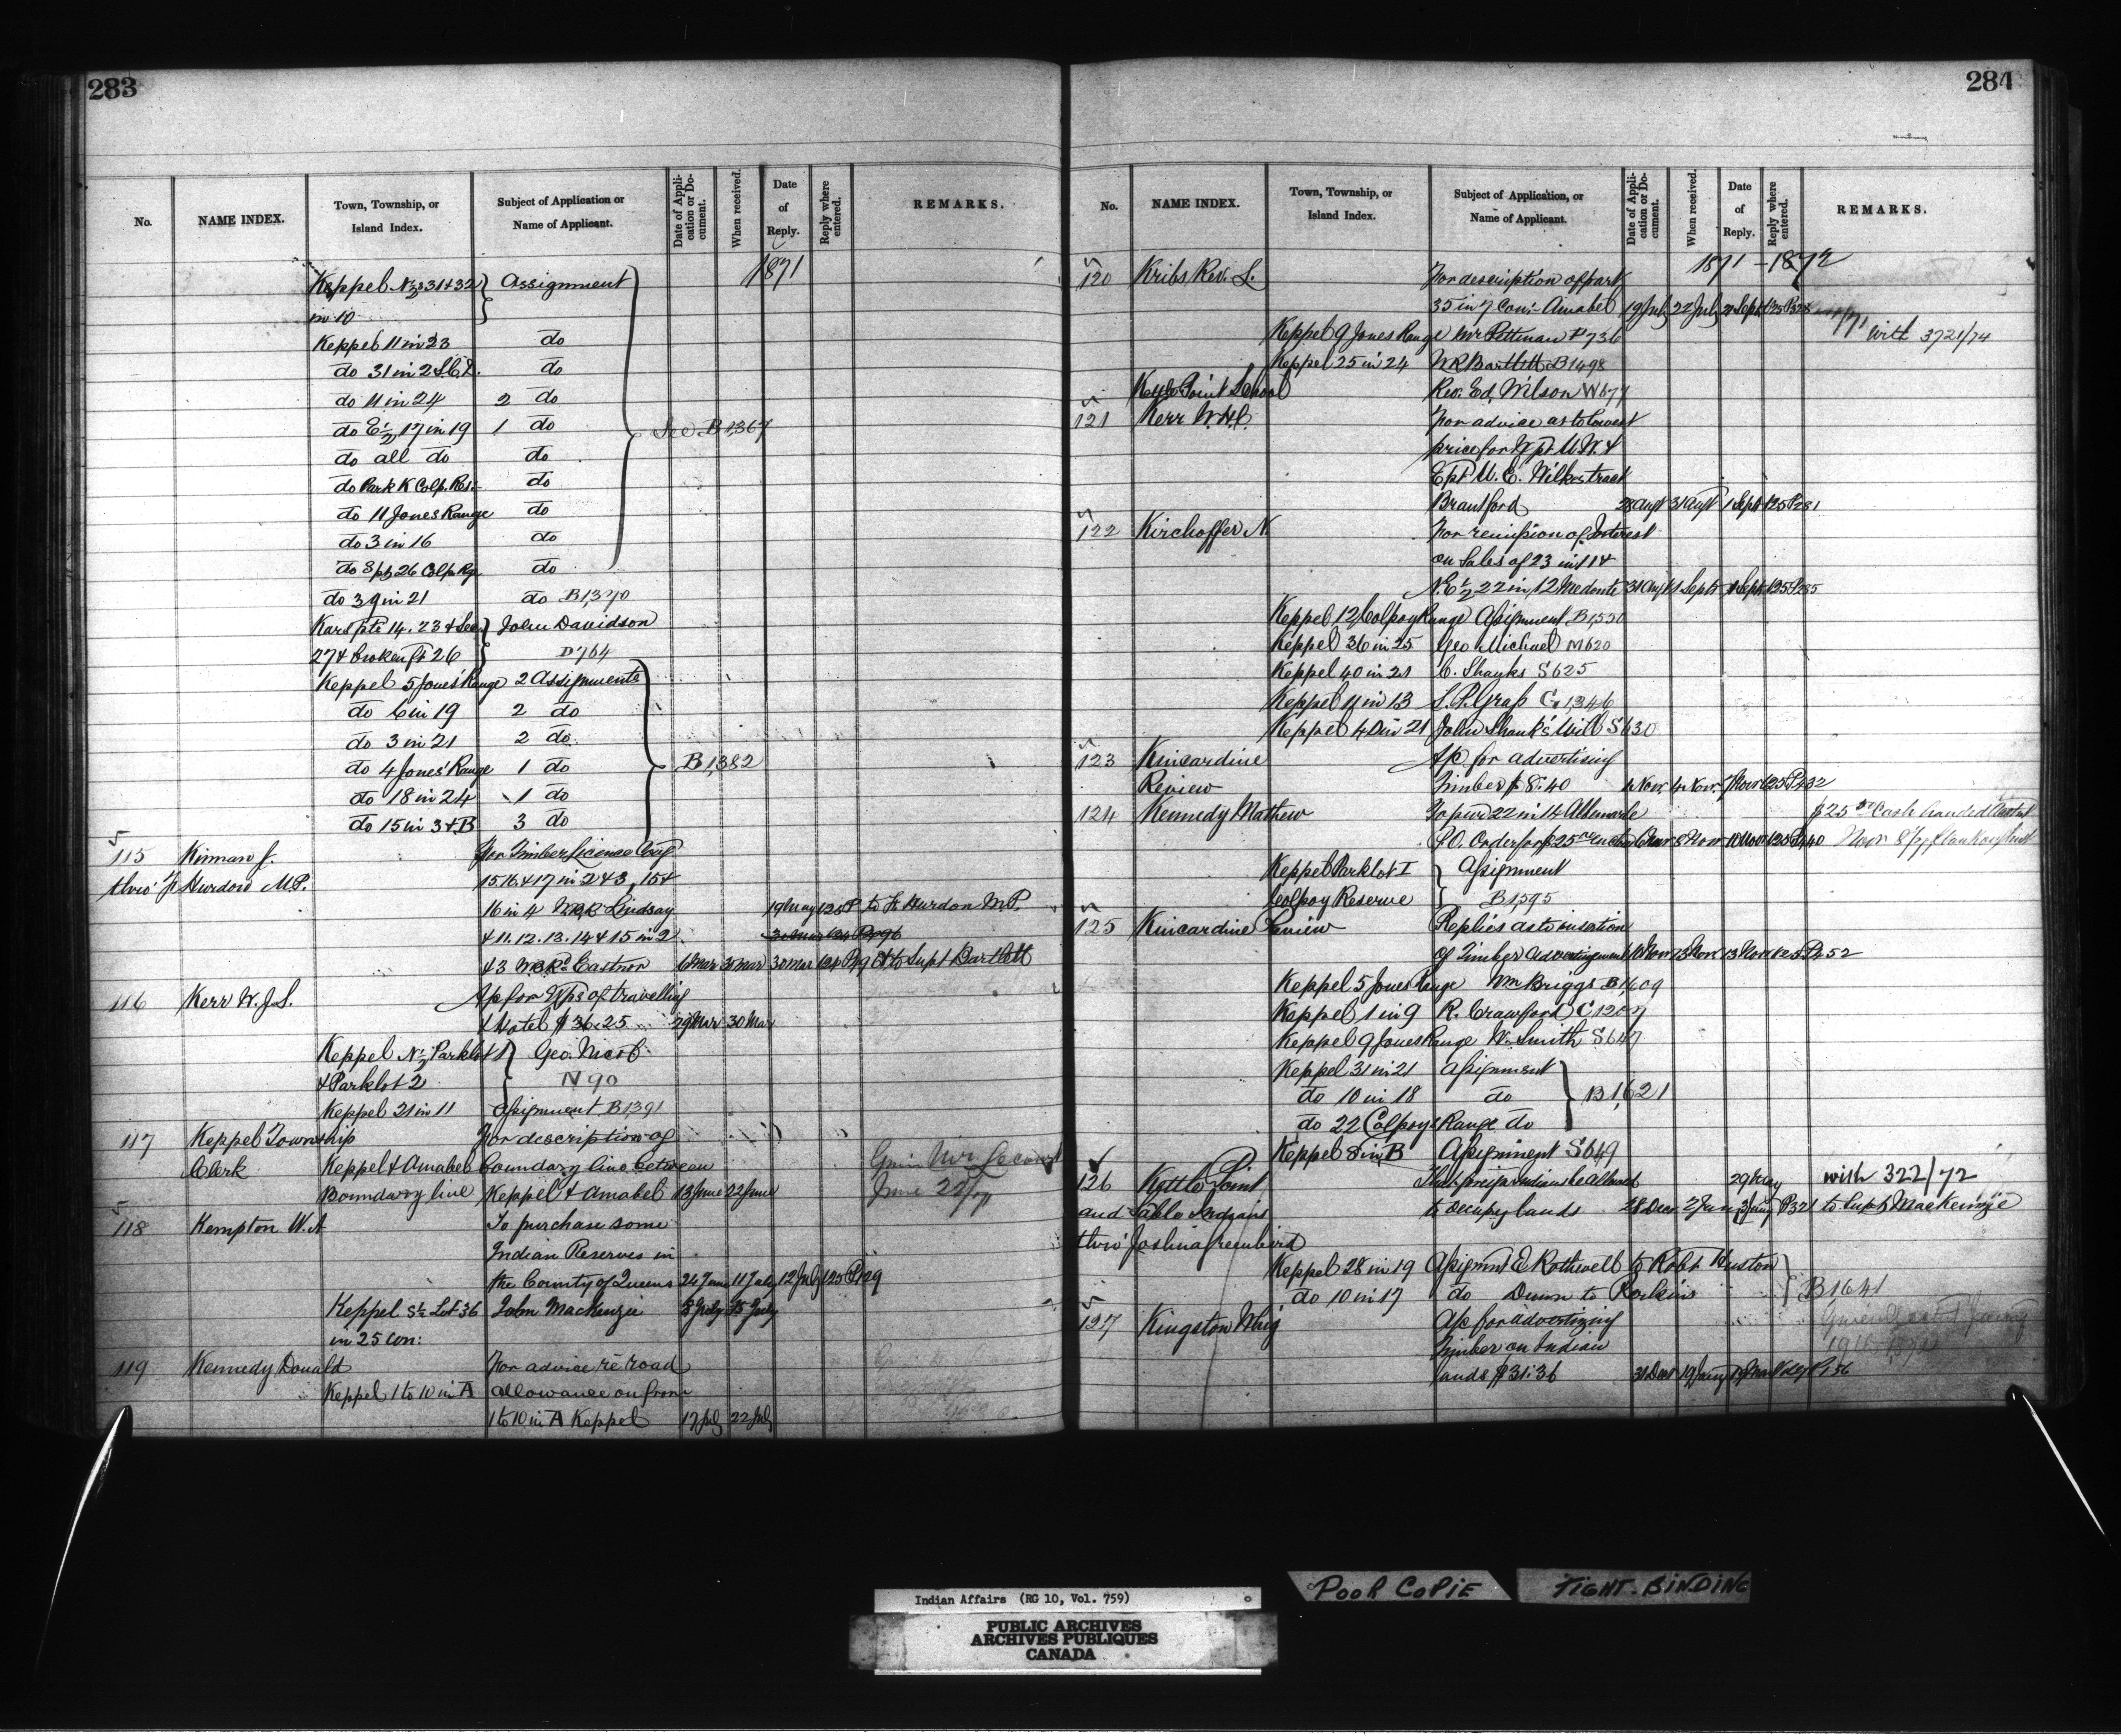 283
No. NAME INDEX. Town, Township, or Island Index. Subject of Application or Name of Applicant. Date of Application or Document. When received. Date of Reply. Reply where entered. REMARKS.
1871
Keppel N½ 31 & 32 } Assignment
in 10
Keppel 11 in 23 do
do 31 in 2 S.C.D. do
do 11 in 24 2 do
do E½ 17 in 19 1 do See B 1,367
do all do do
do Park K Colp. Res. do
do 11 Jones Range do
do 3 in 16 do
do S pt 26 Colp. Rg. do
do 39 in 21 do B1,370
Kars pts 14. 23 & See } John Davidson
27 & broken ft 26 } D764
Keppel 5 Jones' Range 2 Assignments
do 6 in 19 2 do
do 3 in 21 2 do
do 4 Jones' Range 1 do B 1,382
do 18 in 24 1 do
do 15 in 3 & B 3 do
115 Kinman J. For Timber License Cov'g
thro' F. Hurdon M.P. 15.16. & 17 in 2 & 3, 15 &
16 in 4 W.B.R. Lindsay 19 May 125 P to F. Hurdon M.P.
& 11. 12. 13. 14 & 15 in 2
& 3 W.B.Rd Eastnor 6 Mar 30 Mar 30 Mar to Supt Bartlett
116 Kerr W. J. S. A/c for Exps of travelling
& Hotel $36.25 29 Mar 30 Mar
Keppel N½ Parklot 1 } Geo. Nicol
& Parklot 2 } N 90
Keppel 21 in 11 Assignment B1391
117 Keppel Township For description of
Clerk Keppel & Amabel boundary line between Given Mr. Lecourt
Boundary line Keppel & Amabel 13 June 22 June June 22/71
118 Kempton W. A To purchase some
Indian Reserves in
the County of Queens 24 June 11 July 12 July 125 P129
Keppel S½ Lot 36 John Mackenzie 8 July 15 July
in 25 Con:
119 Kennedy Donald For advice re road
Keppel 1 to 10 in A allowance on front
1 to 10 in A Keppel 17 July 22 July
284
No. NAME INDEX. Town, Township, or Island Index. Subject of Application, or Name of Applicant. Date of Application or Document. When received. Date of Reply. Reply where entered. REMARKS.
1871 - 1872
120 Kribs, Rev. L. For description of part
35 in 7 Con: Amabel 19 July 22 July 21 Sept 125 P328
Keppel 9 Jones Range Mr Pettman P736 with 3721/74
Keppel 25 in 24 W R Bartlett B1498
Kettle Point School Rev. Ed. Wilson W677
121 Kerr W. H. C. For advice as to lowest
price for W pt U. W. &
E pt U. E. Wilkes tract
Brantford 28 Augt 31 Augt 1 Sept 125 P281
122 Kirchoffer N. For remission of Interest
on Sales of 23 in 11 &
N.E½ 22 in 12 Medonte 31 Augt 1 Sept 1 Sept 125 P285
Keppel, 12 Colpoy Range Assignment B1,550
Keppel 36 in 25 Geo Michael M620
Keppel 40 in 21 C. Shanks S625
Keppel 11 in 13 S. P. Grass G1,346
Keppel 40 in 21 John Shank's Will S630
123 Kincardine A/c for advertising
Review Timber $8.40 4 Nov 4 Nov 7 Nov 125 P432
124 Kennedy Mathew To pur 22 in 14 Albemarle $25 00 Cash handed
P.O. Order for $25 00 8 Nov 10 Nov 125 P440 Nov 8
Keppel Parklot I } Assignment
Colpoy Reserve } B1,595
125 Kincardine Review Replies as to insertion
of Timber Advertisement 13 Nov 13 Nov 125 P452
Keppel 5 Jones Range Wm Briggs B1,609
Keppel 1 in 9 R. Crawford C1207
Keppel 9 Jones Range W. Smith S647
Keppel 31 in 21 Assignment
do 10 in 18 do B 1,621
do 22 Colpoys Range do
Keppel 8 in B Assignment S649
126 Kettle Point That foreign Indians be allowed 29 May with 322/72
and Sable Indians to occupy lands 28 Decr 2 Jany 3 Jany P321 to Supt Mackenzie
thro' Joshua Greenbird
Keppel 28 in 19 Assignmt E Rothwell to Robt. Huston
do 10 in 17 do Dunn to Perkins B1641
127 Kingston Whig A/c for advertizing
Timber on Indian
Lands $31.36 31 Decr 19 Jany
POOR COPIE
TIGHT-BINDING
Indian Affairs (RG 10, Vol. 759)
PUBLIC ARCHIVES
ARCHIVES PUBLIQUES
CANADA